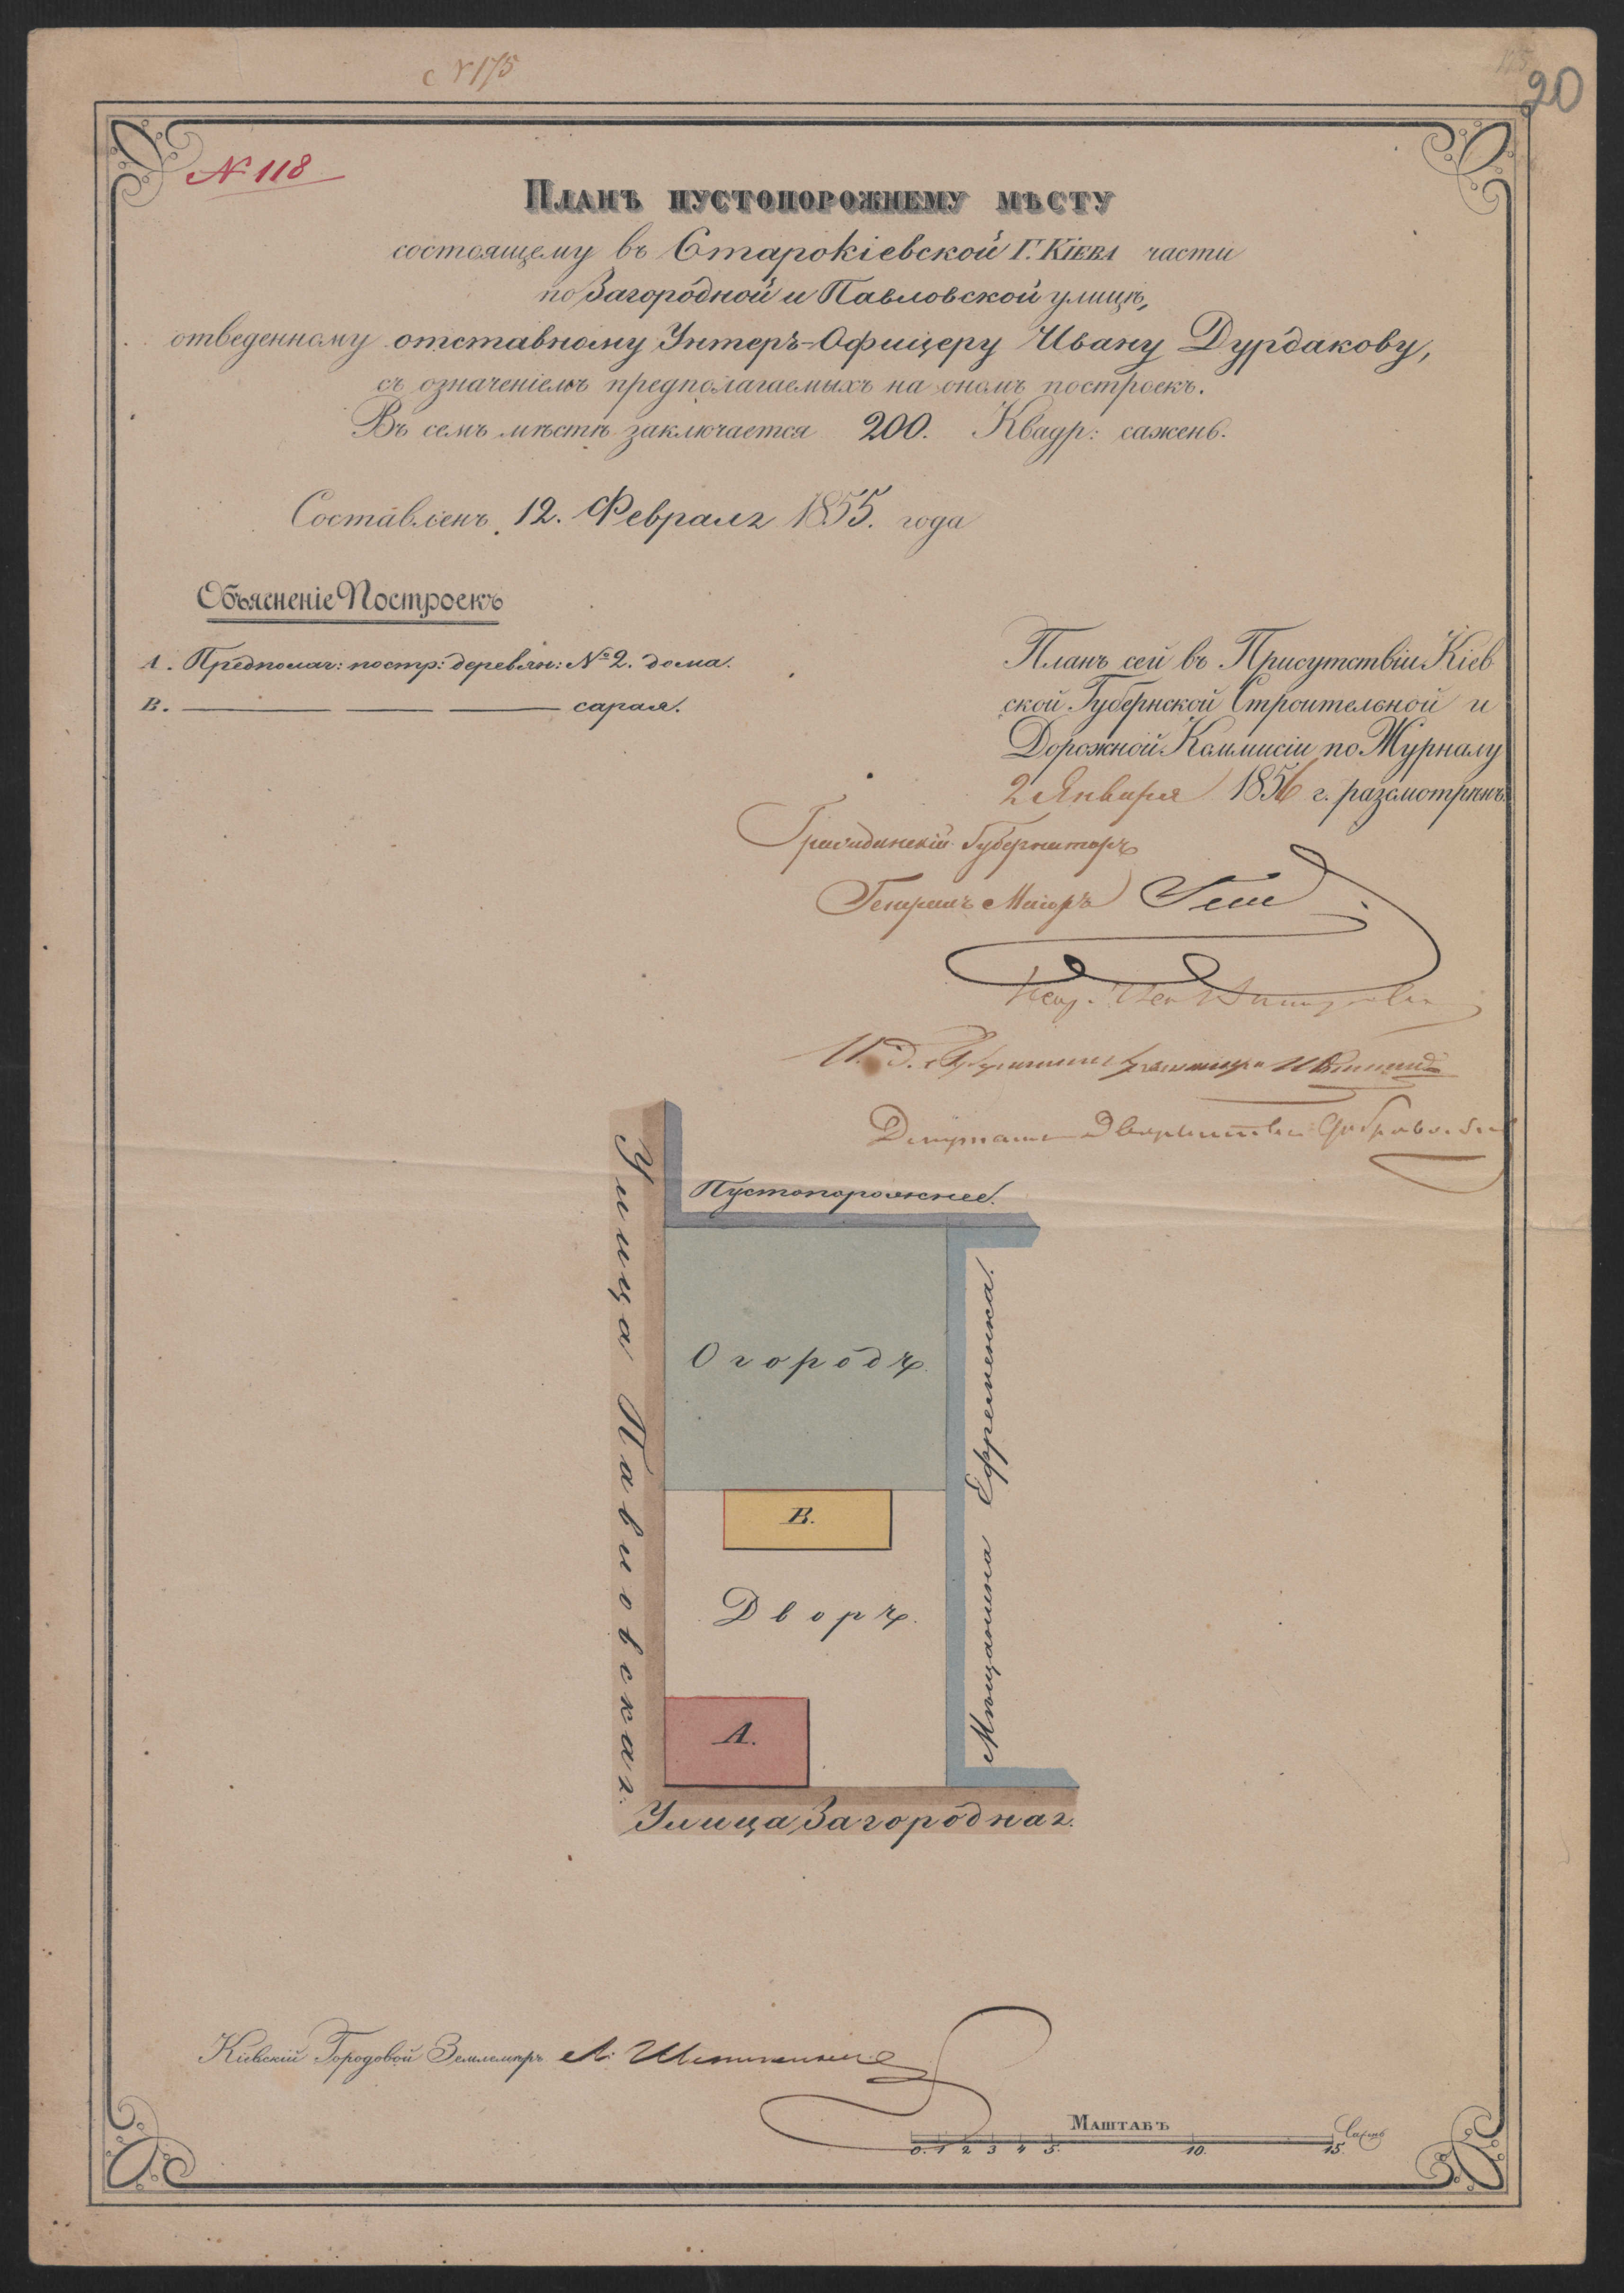 с № 175
20
№ 118
Планъ пустопорожнему мѣсту
состоящему въ Старокіевской Г. Кіева части
по Загородной и Павловской улицѣ,
отведенному отставному Унтеръ-Офицеру Ивану Дурдакову,
съ означеніемъ предполагаемыхъ на ономъ построекъ.
Въ семъ мѣстѣ заключается 200. Квадр: сажень.
Составленъ 12. Февраля 1855. года
Объясненіе Построекъ
А. Предполаг: постр: деревян: № 2. дома.
В. ——— —— ——— сарая.
Планъ сей въ Присутствіи Кіев
ской Губернской Строительной и
Дорожной Коммисіи по Журналу
2 Января 1856 г. разсмотрѣнъ.
Гражданскій Губернаторъ
Генералъ Маіоръ
И. Д.
Депутатъ Дворянства
Пустопорожнее.
Улица Павловская.
Огородъ.
Мѣщанина Ефременка.
В.
Дворъ.
А.
Улица Загородная.
Кіевскій Городовой Землемѣръ
Маштабъ
0. 1 2 3 4 5. 10. 15. Саженъ